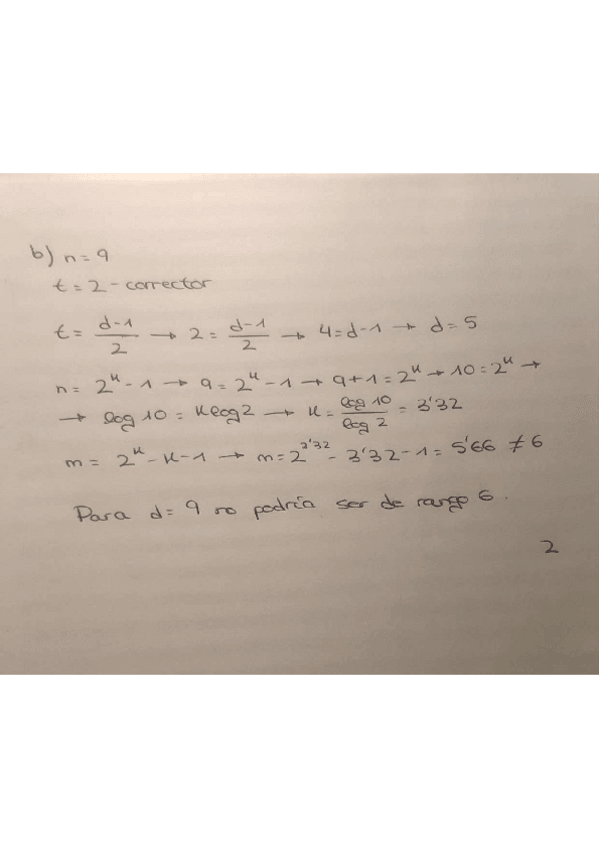 b) n = 9
t = 2 - corrector
t = \frac{d-1}{2} → 2 = \frac{d-1}{2} → 4 = d-1 → d = 5
n = 2^k - 1 → 9 = 2^k - 1 → 9+1 = 2^k → 10 = 2^k →
→ log 10 = k log 2 → k = \frac{log 10}{log 2} = 3'32
m = 2^k - k - 1 → m = 2^{3'32} - 3'32 - 1 = 5'66 ≠ 6
Para d = 9 no podría ser de rango 6.
2